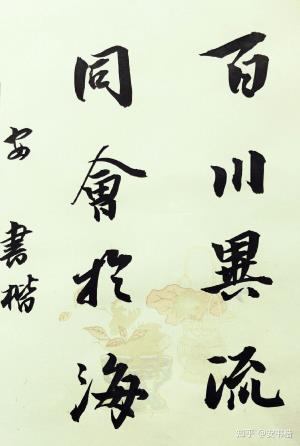 百川異流
同會於海
安書楷
知乎 @安书楷